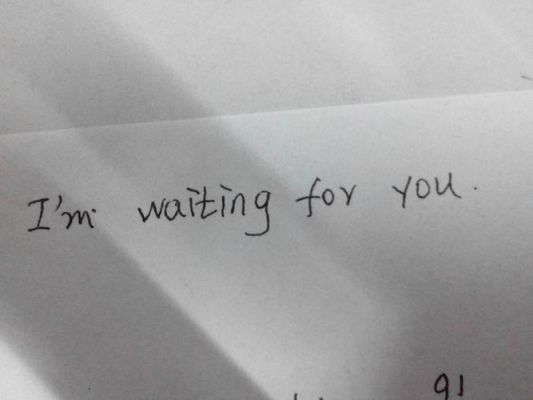 I'm waiting for you.